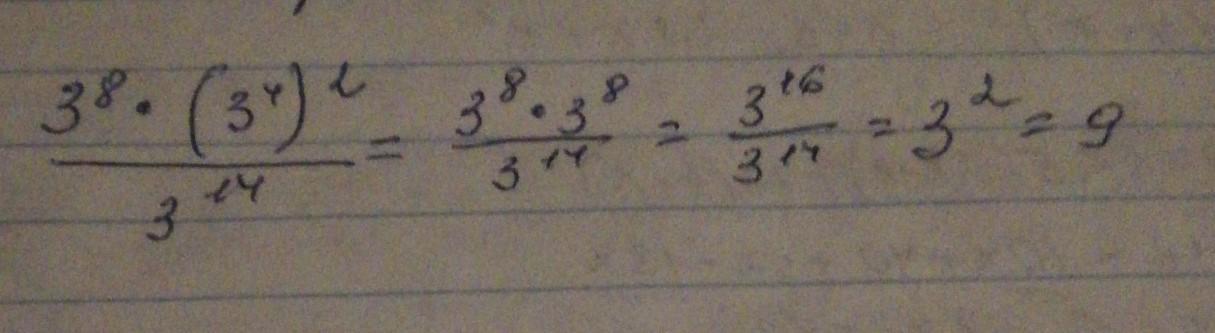 3⁸ · (3⁴)² / 3¹⁴ = 3⁸ · 3⁸ / 3¹⁴ = 3¹⁶ / 3¹⁴ = 3² = 9